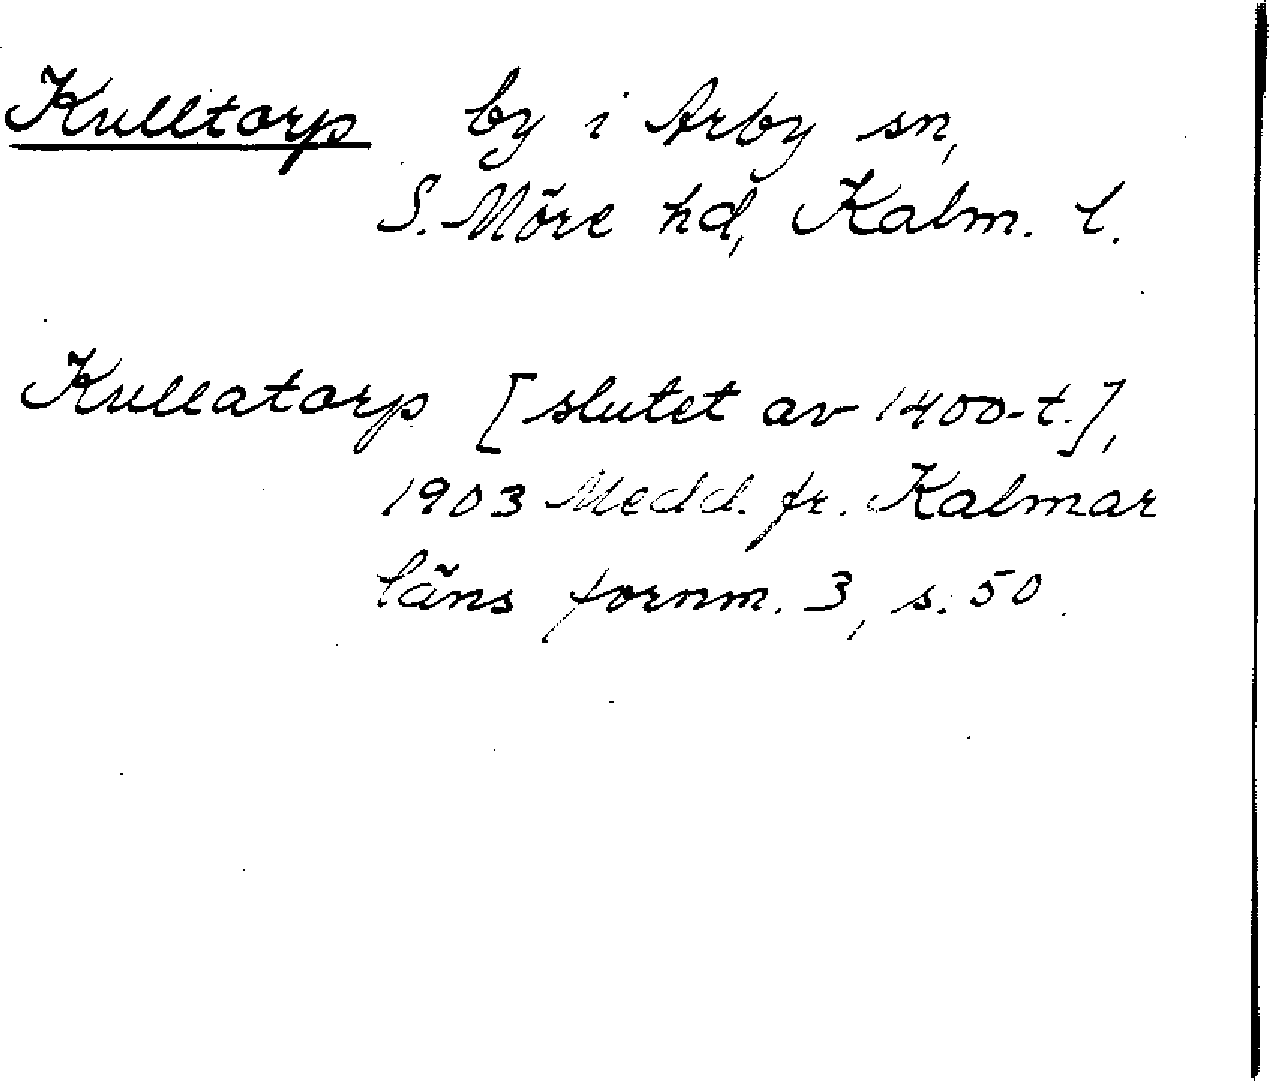 Kulltorp by i Arby sn,
S. Möre hd, Kalm. l.
Kullatorp [slutet av 1400-t.],
1903 Medd. fr. Kalmar
läns fornm. 3, s. 50.